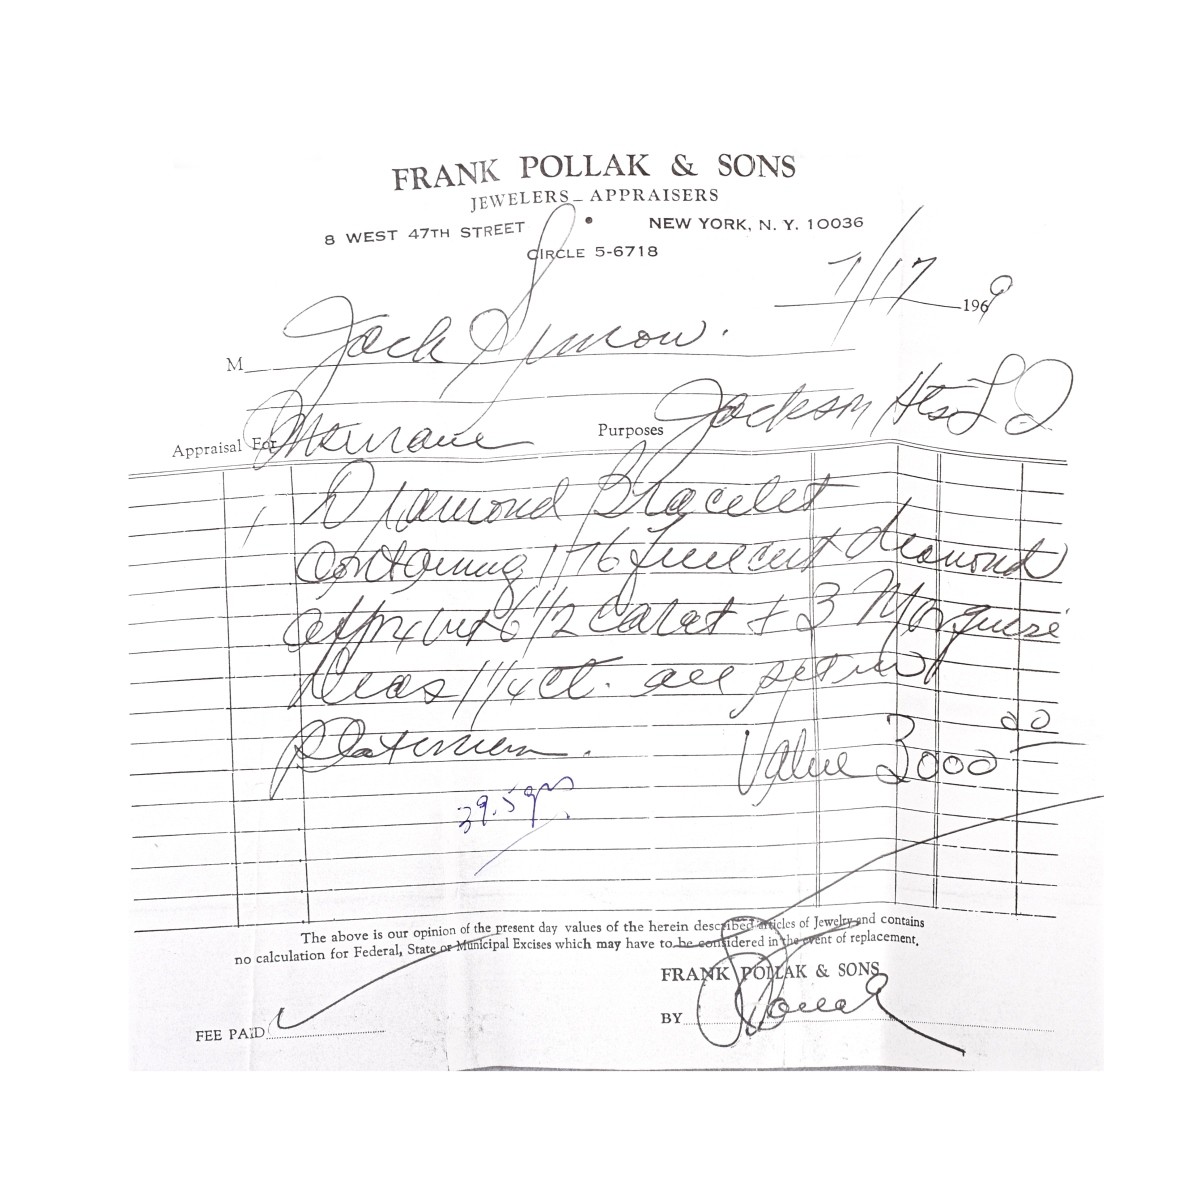 FRANK POLLAK & SONS
JEWELERS - APPRAISERS
8 WEST 47TH STREET • NEW YORK, N. Y. 10036
CIRCLE 5-6718
7/17 1969
M Jack Simow.
Jackson Hts L I
Appraisal For Insurance Purposes
1 Diamond Bracelet
Containing 176 full cut diamond
approx 6 1/2 Carat + 3 Marquise
Dias 1 1/4 ct. all set in
platinum. Value 3000 00
39.5 gm
The above is our opinion of the present day values of the herein described articles of Jewelry and contains
no calculation for Federal, State or Municipal Excises which may have to be considered in the event of replacement.
FRANK POLLAK & SONS
FEE PAID BY Pollak